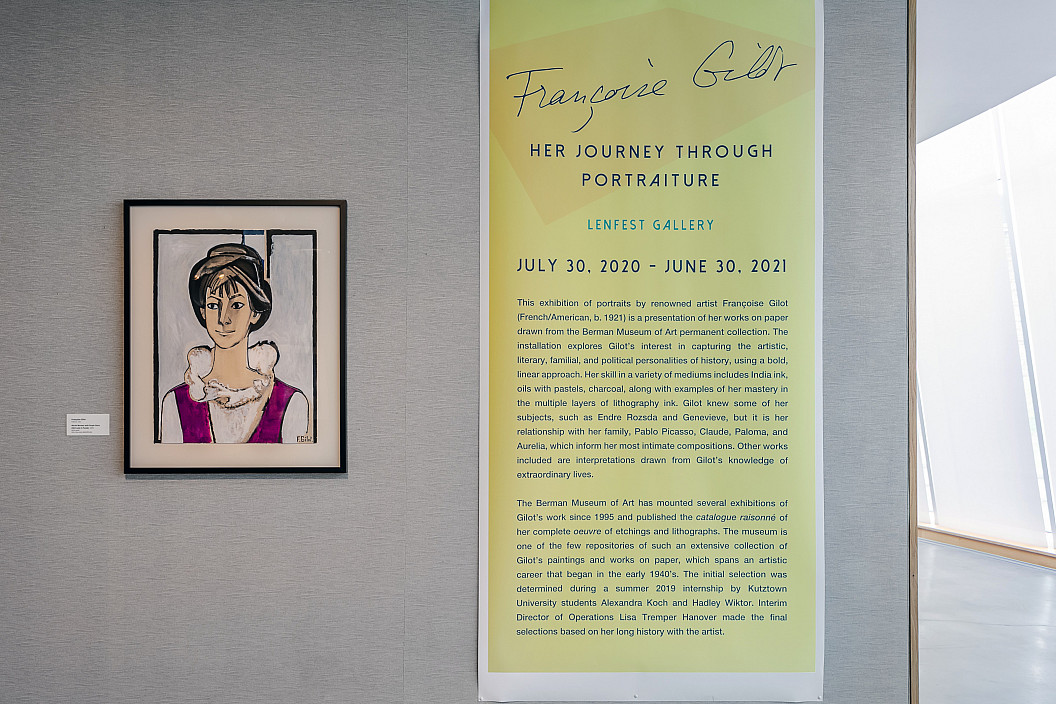 Françoise Gilot
HER JOURNEY THROUGH
PORTRAITURE
LENFEST GALLERY
JULY 30, 2020 - JUNE 30, 2021
This exhibition of portraits by renowned artist Françoise Gilot
(French/American, b. 1921) is a presentation of her works on paper
drawn from the Berman Museum of Art permanent collection. The
installation explores Gilot's interest in capturing the artistic,
literary, familial, and political personalities of history, using a bold,
linear approach. Her skill in a variety of mediums includes India ink,
oils with pastels, charcoal, along with examples of her mastery in
the multiple layers of lithography ink. Gilot knew some of her
subjects, such as Endre Rozsda and Genevieve, but it is her
relationship with her family, Pablo Picasso, Claude, Paloma, and
Aurelia, which inform her most intimate compositions. Other works
included are interpretations drawn from Gilot's knowledge of
extraordinary lives.
The Berman Museum of Art has mounted several exhibitions of
Gilot's work since 1995 and published the catalogue raisonné of
her complete oeuvre of etchings and lithographs. The museum is
one of the few repositories of such an extensive collection of
Gilot's paintings and works on paper, which spans an artistic
career that began in the early 1940's. The initial selection was
determined during a summer 2019 internship by Kutztown
University students Alexandra Koch and Hadley Wiktor. Interim
Director of Operations Lisa Tremper Hanover made the final
selections based on her long history with the artist.
F.Gilot